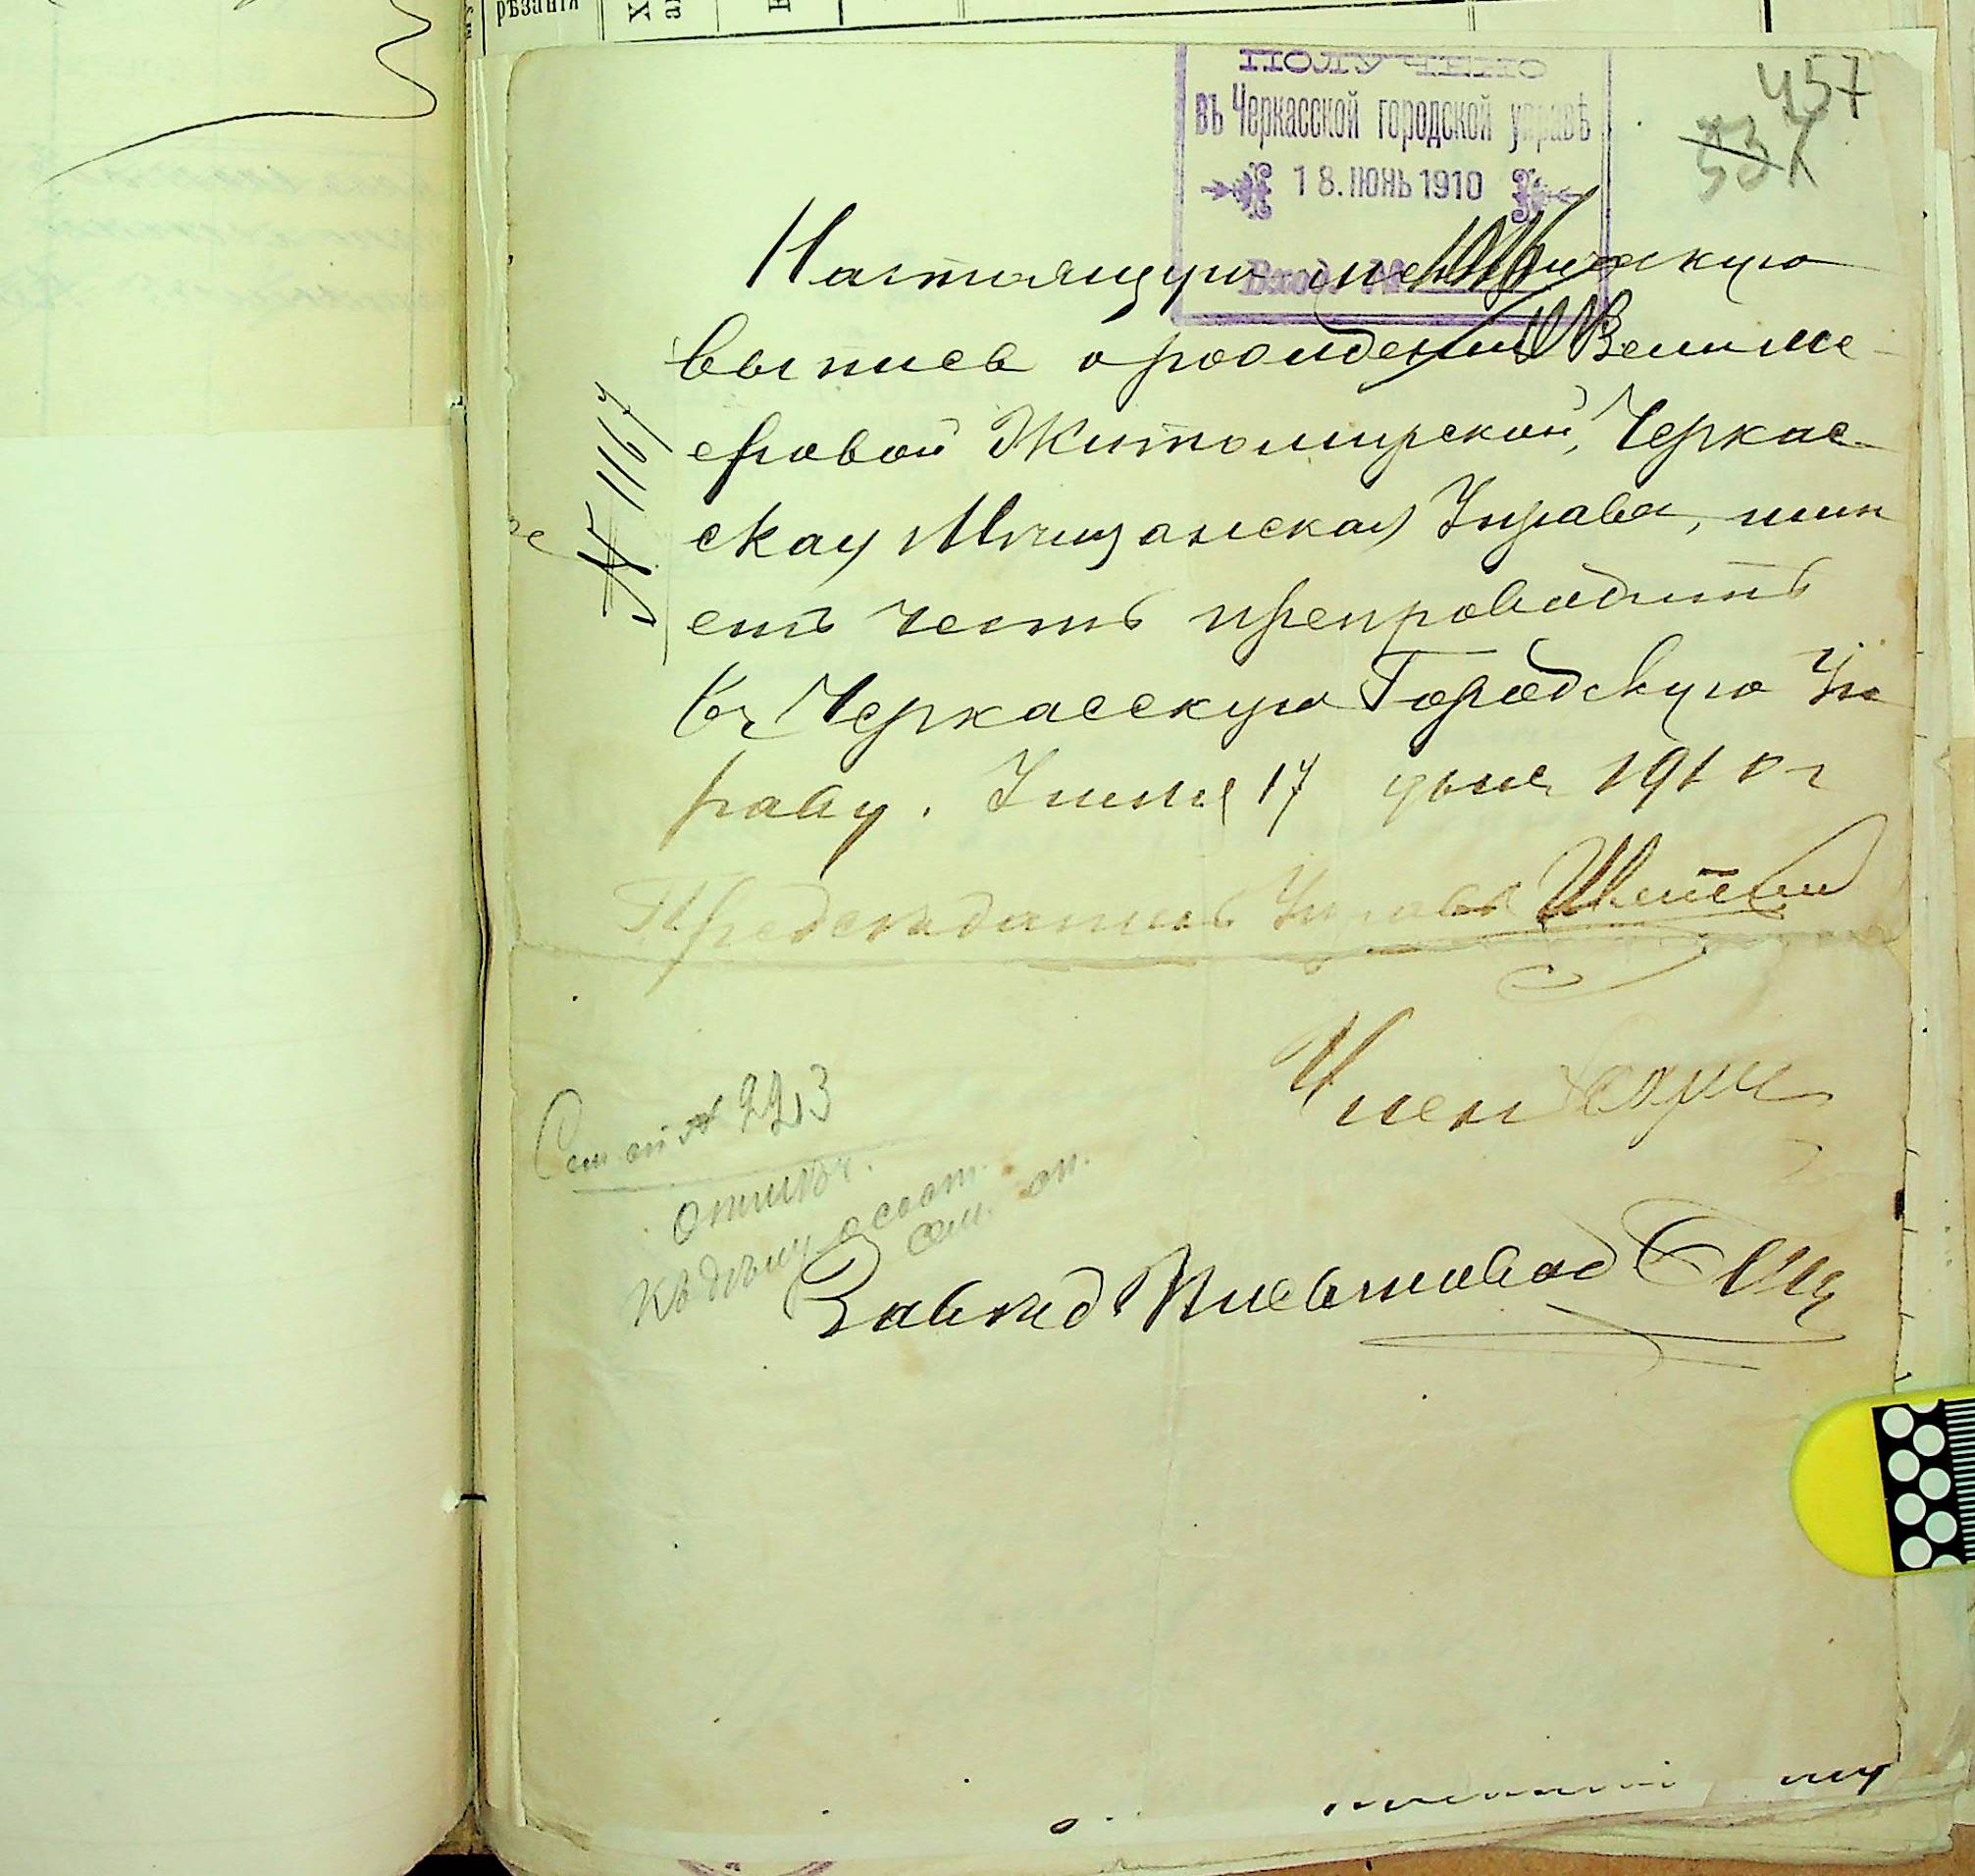 рѣзанія
ПОЛУЧЕНО
въ Черкасской городской управѣ
18. ІЮНЬ 1910
Вход. №
457
537
Настоящую метрическую
выпись о рождении Велиме-
еровой Житомирской, Черкас
ская Мѣщанская Управа, имѣ
етъ честь препроводить
въ Черкасскую Городскую Уп
раву. Июня 17 дня 1910 г
№ 1167
Председатель Управы
Член
2213
Отмѣч.
Къ дѣлу о сост.
сем. сп.
Завѣд Письмовод